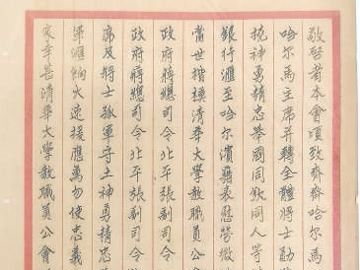 敬啓者本會頃致齊齊哈尔馬
哈尔馬主席并轉全體將士勛
抗神勇精忠舉國同欽同人等
銀行滙至哈尔濱藉表慰勞微
當世楷模清華大學教職員公
政府蔣總司令北平張副司令
政府蔣總司令北平張副司令
席及將士孤軍守土神勇精忠
彈滙餉火速援應萬勿使忠義
家幸甚清華大學教職員公會